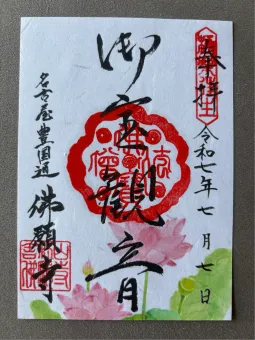 奉拝
令和七年七月七日
御觀音
名古屋豊国通
佛願寺